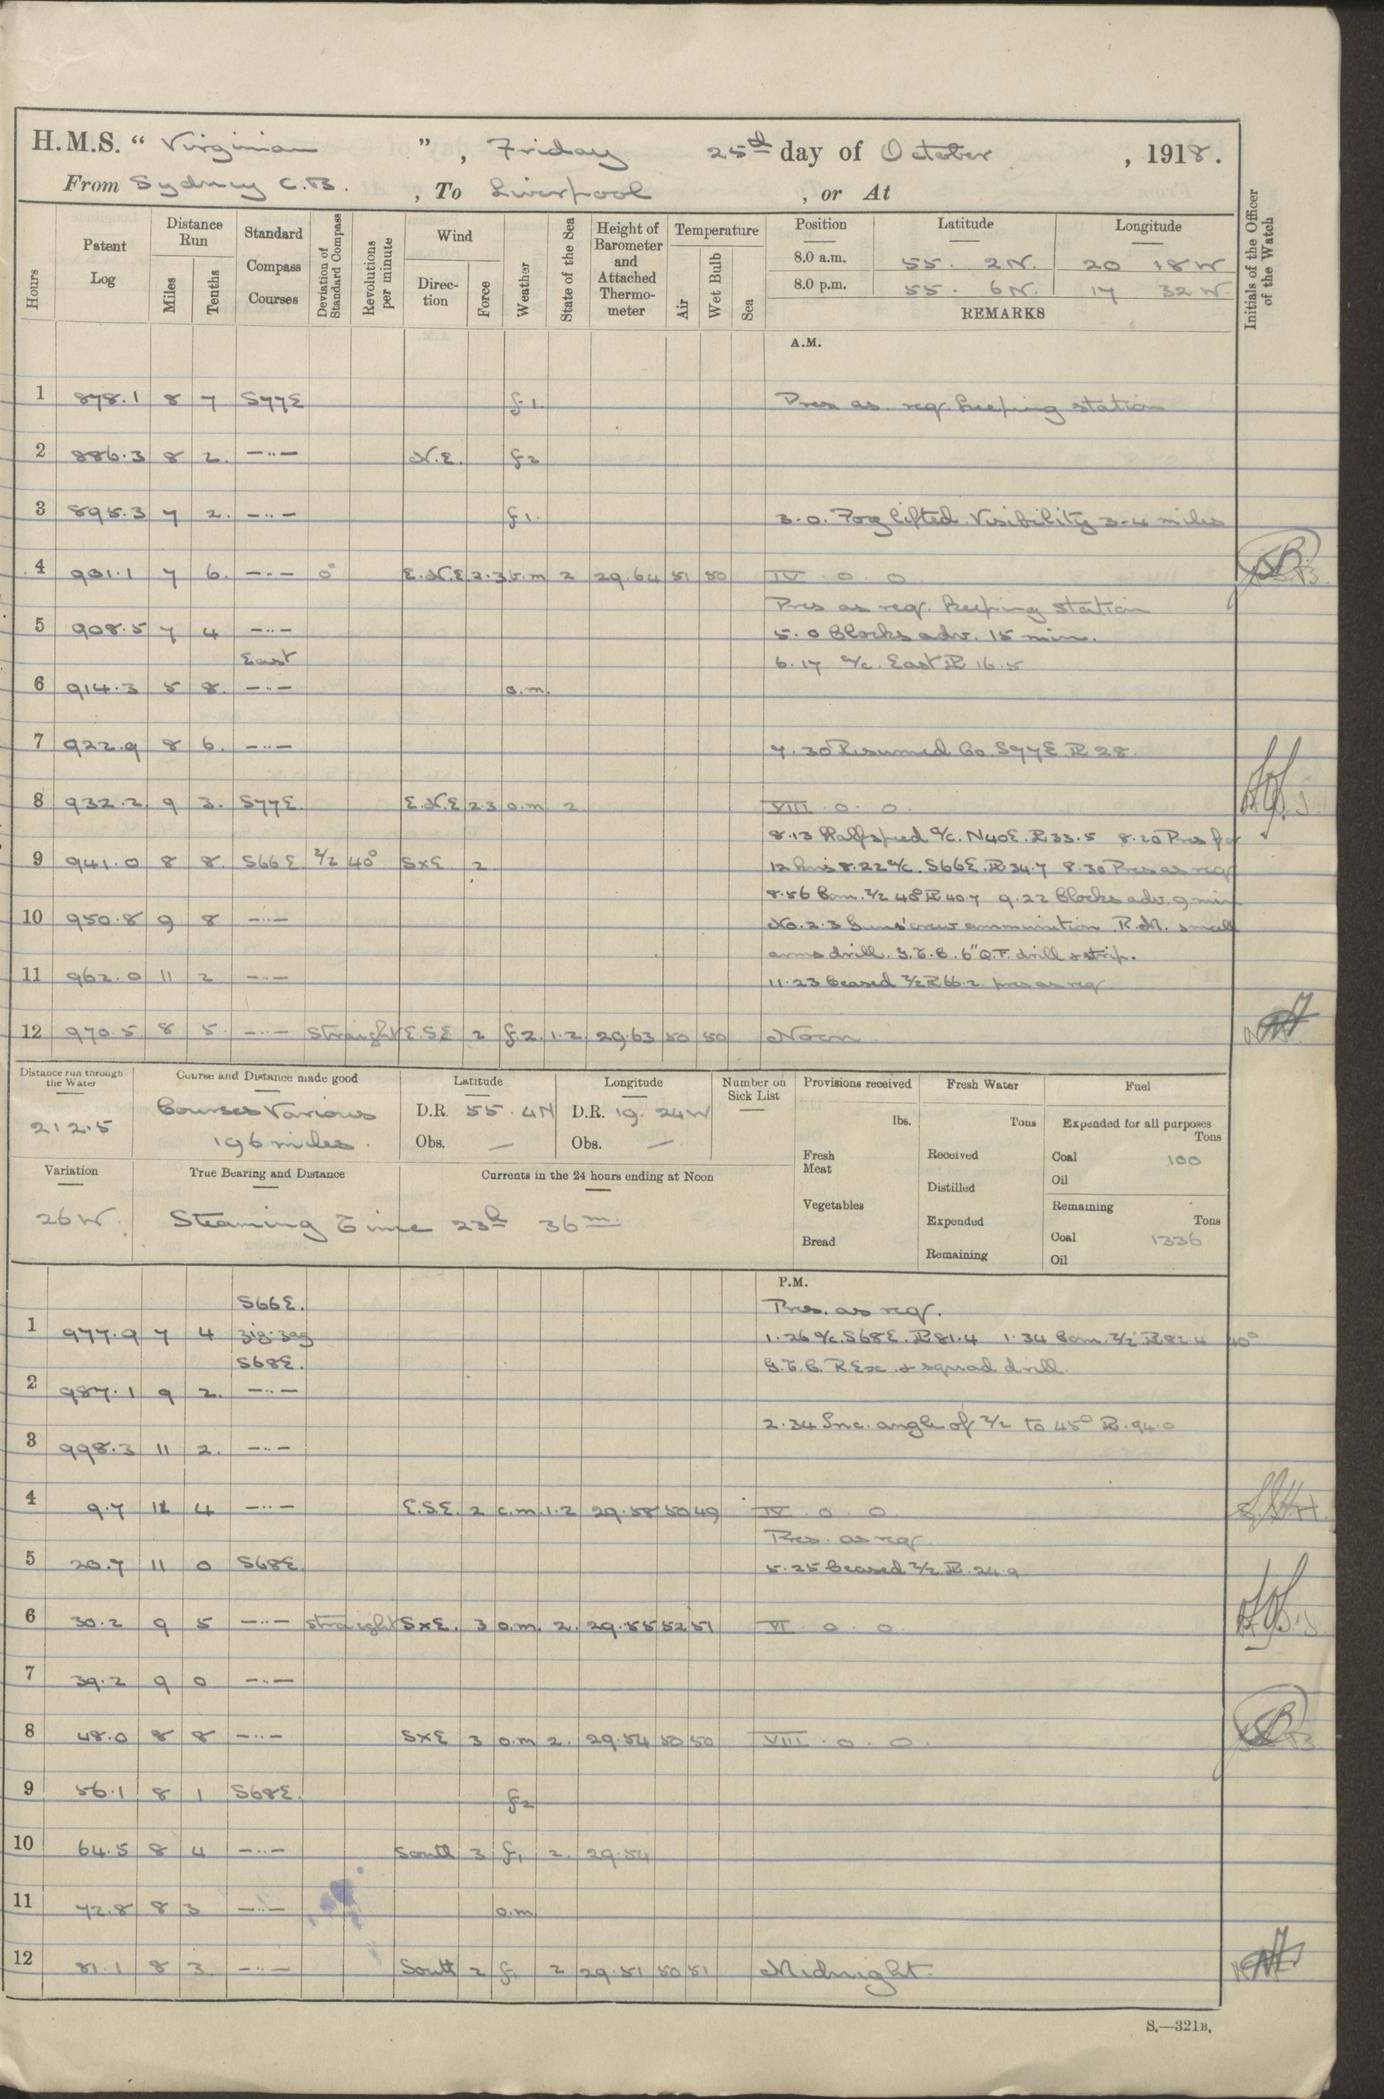 H.M.S. “ Virginian ”, Friday 25th day of October, 1918.
From Sydney C.B., To Liverpool, or At
Hours Patent Log Distance Run Miles Tenths Standard Compass Courses Deviation of Standard Compass Revolutions per minute Wind Direction Force Weather State of the Sea Height of Barometer and Attached Thermometer Temperature Air Wet Bulb Sea
Position Latitude Longitude
8.0 a.m. 55. 2N. 20 18 W
8.0 p.m. 55. 6N. 17 32 W.
REMARKS
Initials of the Officer of the Watch
A.M.
1 878.1 8 7 S77E f.1. Pres as req. keeping station
2 886.3 8 2. —..— N.E. f2
3 895.3 7 2. —..— f1. 3.0. Fog lifted. Visibility 3-4 miles
4 901.1 7 6. —..— 0° E.N.E 2.3 o.m 2 29.64 51 50 IV. 0. 0
Pres as req. keeping station
5 908.5 7 4 —..— 5.0 Clocks adv. 15 min.
East 6.17 a/c. East R 16.5
6 914.3 5 8. —..— o.m.
7 922.9 8 6. —..— 7.30 Resumed Co. S77E R 28.
8 932.2 9 3. S77E. E.N.E 2.3 o.m 2 VIII. 0. 0.
8.13 Half speed a/c. N40E. R33.5 8.20 Pres for
9 941.0 8 8. S66E Z/Z 40° SxE 2 12 kns 8.22 a/c. S66E. R34.7 8.30 Pres as req
8.56 Com. Z/Z 40° R40.7 9.22 Clocks adv. 9 min
10 950.8 9 8 —..— No. 2.3 Guns' crew ammunition R.M. small
arms drill. G.T.C. 6" Q.F. drill & strip.
11 962.0 11 2 —..— 11.23 Ceased Z/Z R66.2 pres as req
12 970.5 8 5. —..— Straight E.S.E 2 f.2 1.2 29.63 50 50 Noon
Distance run through the Water Course and Distance made good Latitude Longitude Number on Sick List Provisions received Fresh Water Fuel
212.5 Courses Various 196 miles. D.R. 55. 4N D.R. 19. 24W
Obs. — Obs. —
lbs. Tons Expended for all purposes Tons
Fresh Meat Received Coal 100
Distilled Oil
Variation True Bearing and Distance Currents in the 24 hours ending at Noon
26 W. Steaming Time 23h 36m.
Vegetables Remaining Tons
Expended
Bread Coal 1336
Remaining Oil
P.M.
S66E. Pres. as req.
1 977.9 7 4 zig-zag 1.26 a/c. S68E. R81.4 1.34 Com. Z/Z R82.4 40°
S68E. G.T.C. R.Ex & squad drill
2 987.1 9 2. —..—
2.34 Inc. angle of Z/Z to 45° R.94.0
3 998.3 11 2. —..—
4 9.7 11 4 —..— E.S.E. 2 c.m. 1.2 29.58 50 49 IV. 0. 0.
Pres. as req
5 20.7 11 0 S68E. 5.25 Ceased Z/Z R.24.9
6 30.2 9 5 —..— straight SxE. 3 o.m. 2. 29.55 52 51 VI. 0. 0.
7 39.2 9 0 —..—
8 48.0 8 8 —..— SxE 3 o.m 2. 29.54 50 50 VIII. 0. 0.
9 56.1 8 1 S68E. f2
10 64.5 8 4 —..— South 3 f1 2. 29.54
11 72.8 8 3 —..— o.m
12 81.1 8 3. —..— South 2 f. 2 29.51 50 51 Midnight.
S.—321B.